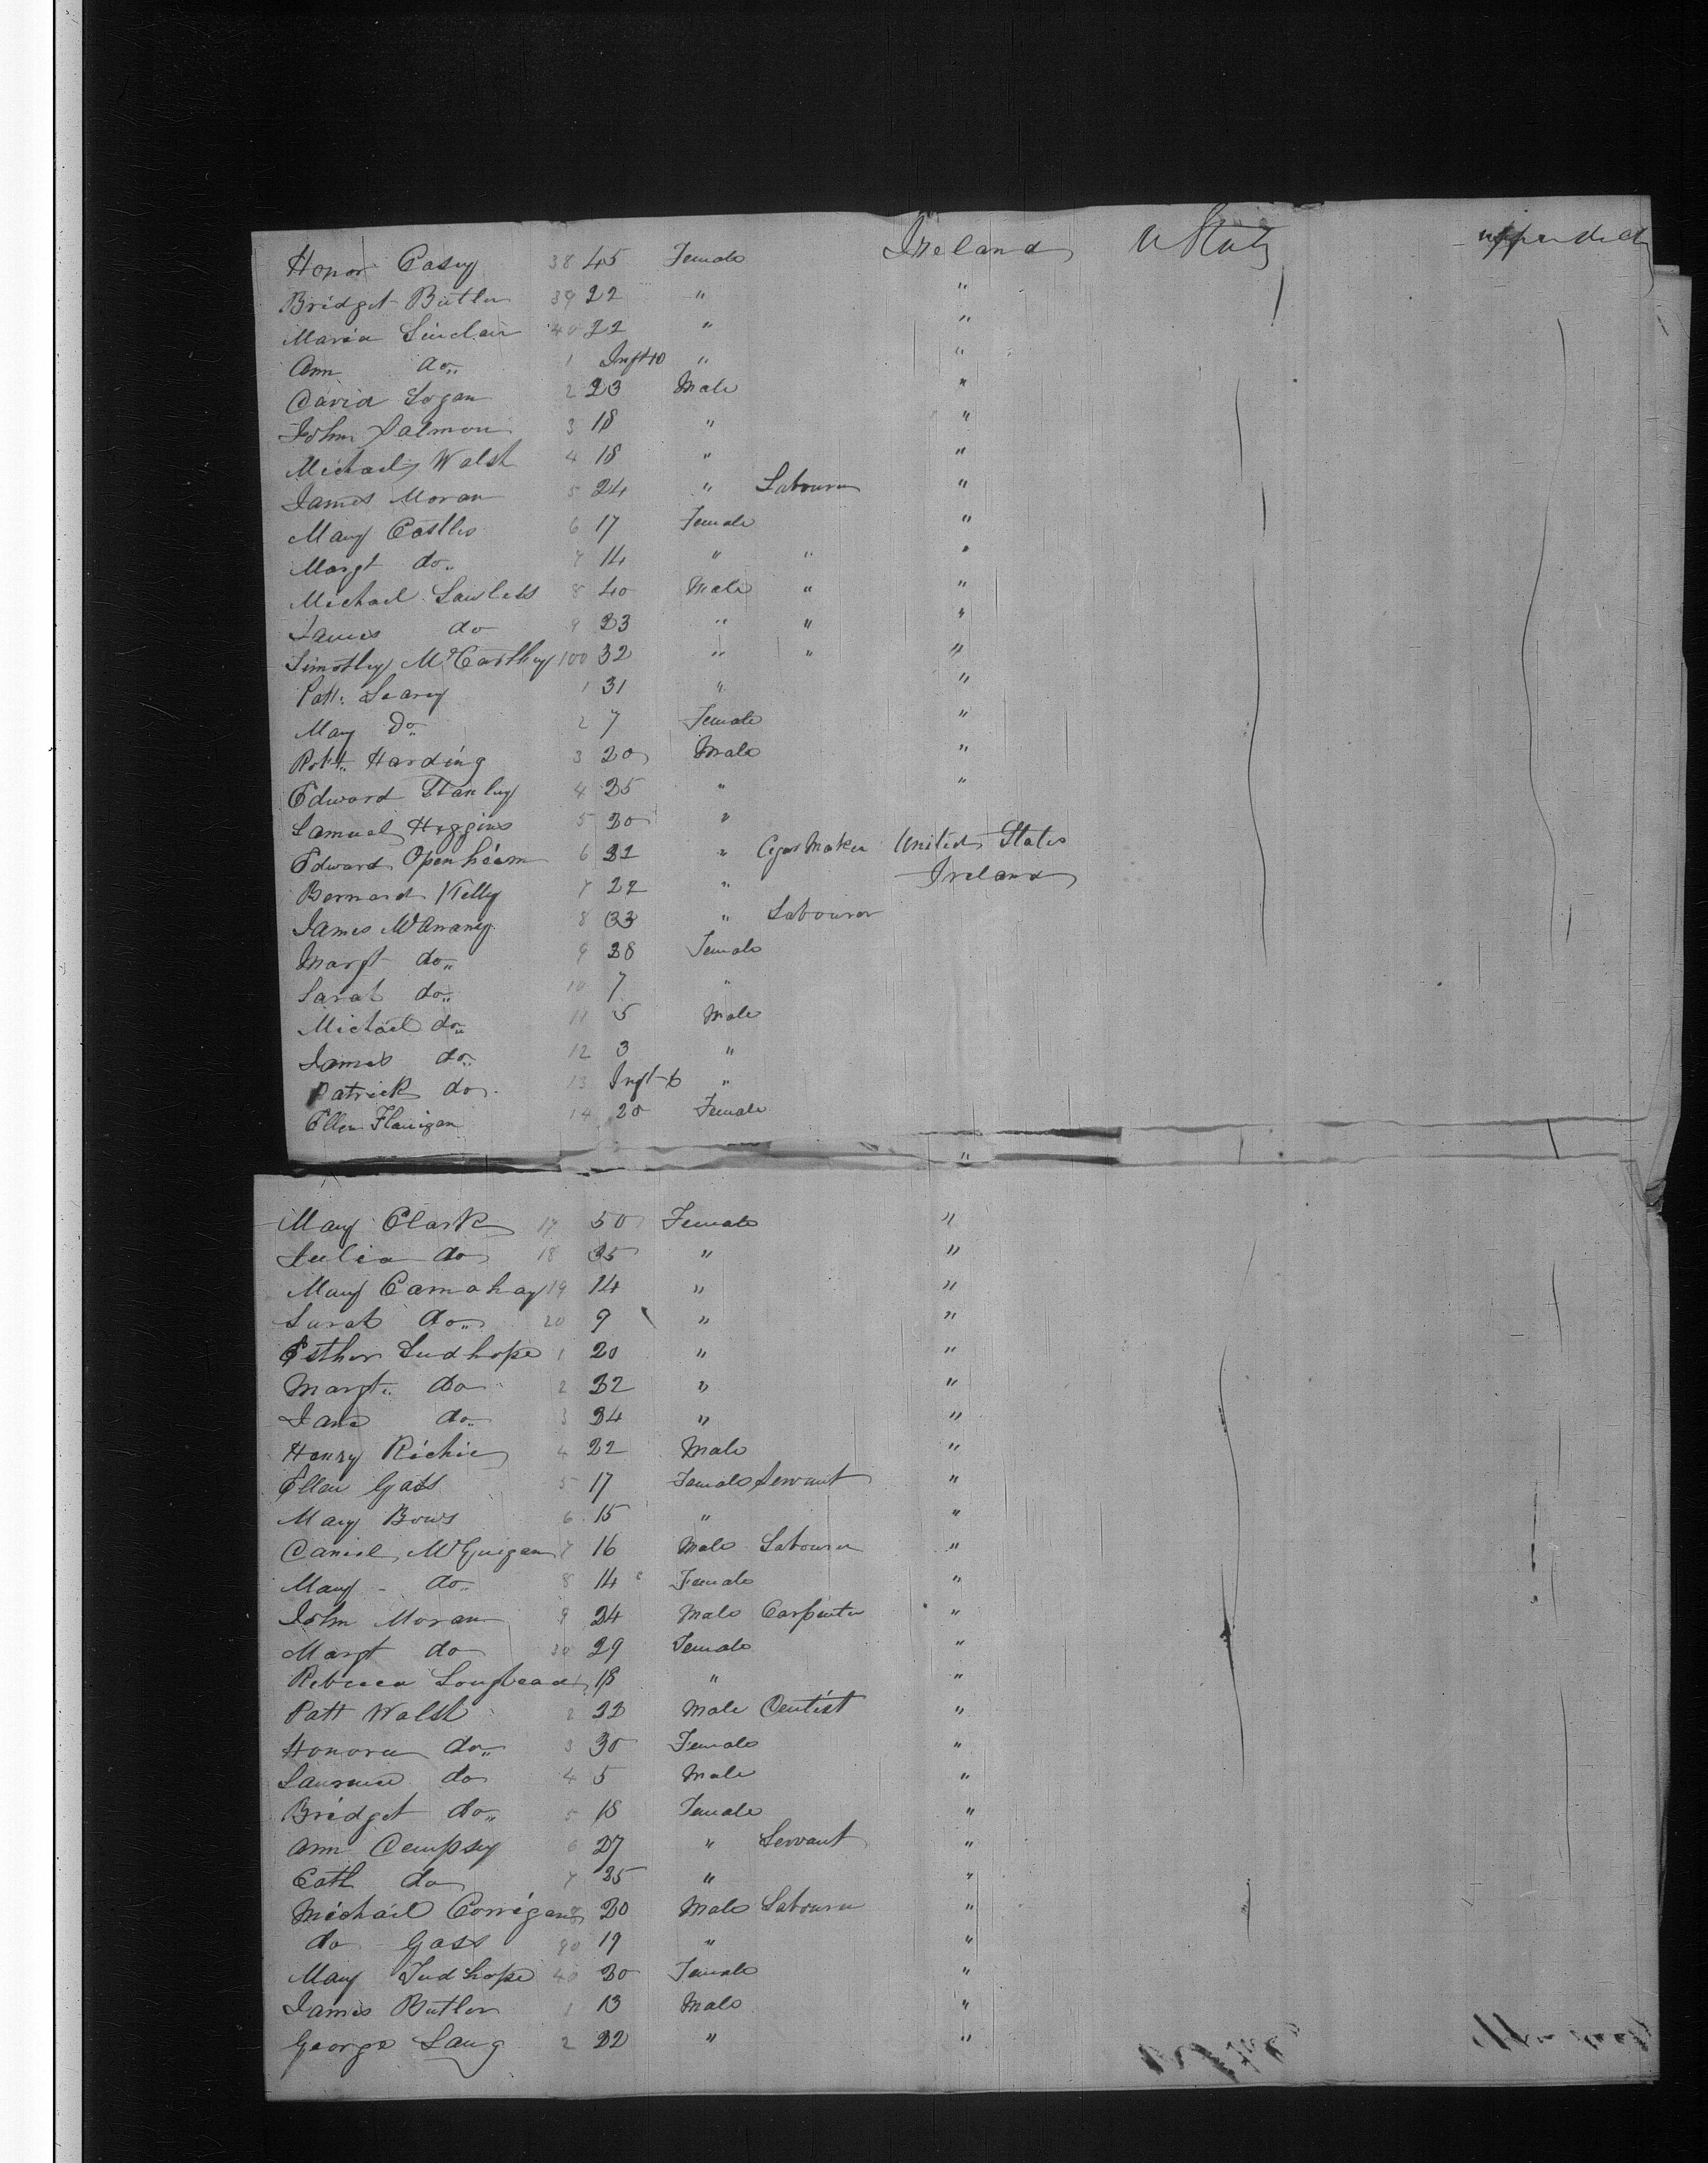 Honor Casey 38 45 Female Ireland U States upper deck
Bridget Butler 39 22 " "
Maria Sinclair 40 22 " "
Ann do 1 Inft 10 " "
David Logan 2 23 Male "
John Salmon 3 18 " "
Michael Walsh 4 18 " "
James Moran 5 24 " Labourer "
Mary Costlo 6 17 Female "
Margt do 7 14 " " "
Michael Lawless 8 40 Male " "
James do 9 33 " " "
Timothy McCarthy 100 32 " " "
Patt. Leary 1 31 " "
Mary Do 2 7 Female "
Robt. Harding 3 20 Male "
Edward Stanley 4 25 " "
Samuel Higgins 5 20 "
Edward Openheim 6 32 " Cigar Maker United States
Bernard Kelly 7 22 " Ireland
James 8 33 " Labourer
Margt do 9 28 Female
Sarah do 10 7 "
Michael do 11 5 Male
James do 12 3 "
Patrick do 13 Inft 6 "
Ellen Flanigan 14 20 Female
"
Mary Clark 17 50 Female "
Julia do 18 35 " "
Mary Camahay 19 14 " "
Sarah do 20 9 " "
Esther Tudhope 1 20 " "
Margt. do 2 32 " "
Jane do 3 34 " "
Henry Richie 4 22 Male "
Ellen Gass 5 17 Female Servant "
Mary Bows 6 15 " "
Daniel McGuigan 7 16 Male Labourer "
Mary do 8 14 Female "
John Moran 9 24 Male Carpenter "
Margt do 30 29 Female "
Rebecca Loughead 1 18 " "
Patt Walsh 2 32 Male Dentist "
Honora do 3 30 Female "
Laurence do 4 5 Male "
Bridget do 5 18 Female "
Ann Dempsey 6 27 " Servant "
Cath do 7 25 " "
Michael Corrigan 8 20 Male Labourer "
do Gass 19 " "
Mary Tudhope 40 30 Female "
James Butler 1 13 Male "
George Laug 2 22 " "